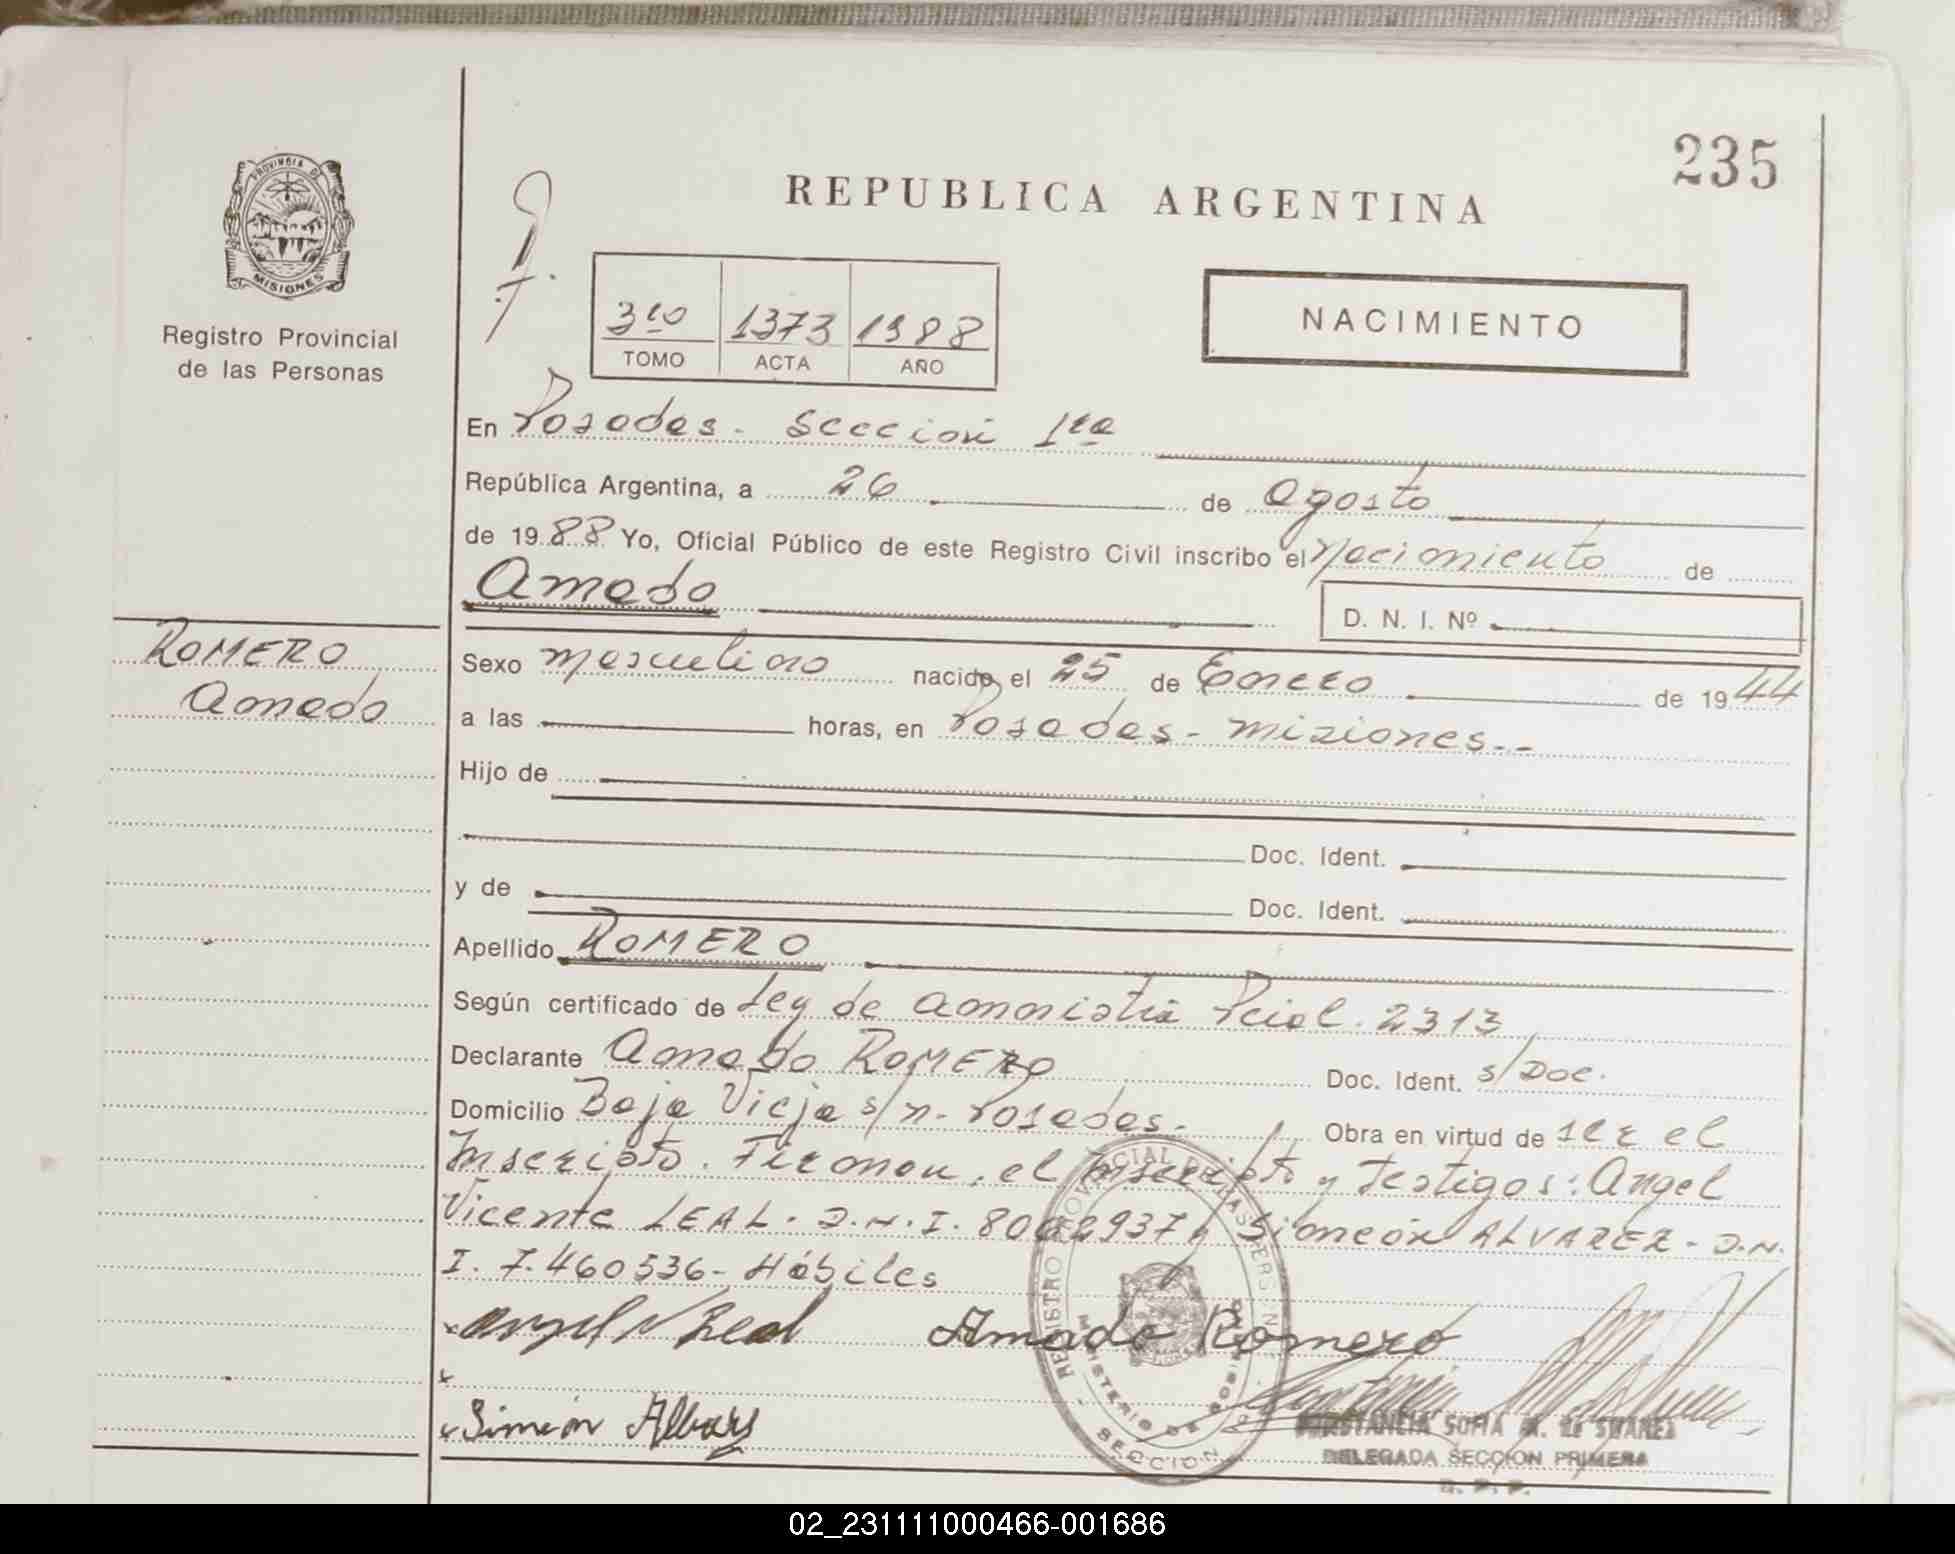 235
REPUBLICA ARGENTINA
PROVINCIA DE
MISIONES
Registro Provincial
de las Personas
3ro 1373 1988
TOMO ACTA AÑO
NACIMIENTO
En Posadas - Sección 1ra
República Argentina, a 26 de Agosto
de 1988 Yo, Oficial Público de este Registro Civil inscribo el Nacimiento de
Amado
D. N. I. Nº
ROMERO
Amado
Sexo masculino nacido el 25 de Enero de 1944
a las horas, en Posadas - Misiones.-
Hijo de
Doc. Ident.
y de Doc. Ident.
Apellido ROMERO
Según certificado de Ley de Amnistía Pcial. 2313
Declarante Amado ROMERO Doc. Ident. s/Doc.
Domicilio Baja Vieja s/n - Posadas. Obra en virtud de ser el
Inscripto. Firman, el Inscripto y testigos: Angel
Vicente LEAL - D.N.I. Simeón ALVAREZ - D.N.
I. 7.460536 - Hábiles
Angel V Leal Amado Romero
Simeón Albarez
REGISTRO PROVINCIAL DE LAS PERSONAS
MINISTERIO DE GOBIERNO
SECCION
CONSTANCIA SOFIA M. de SUAREZ
DELEGADA SECCION PRIMERA
R. P. P.
02_231111000466-001686